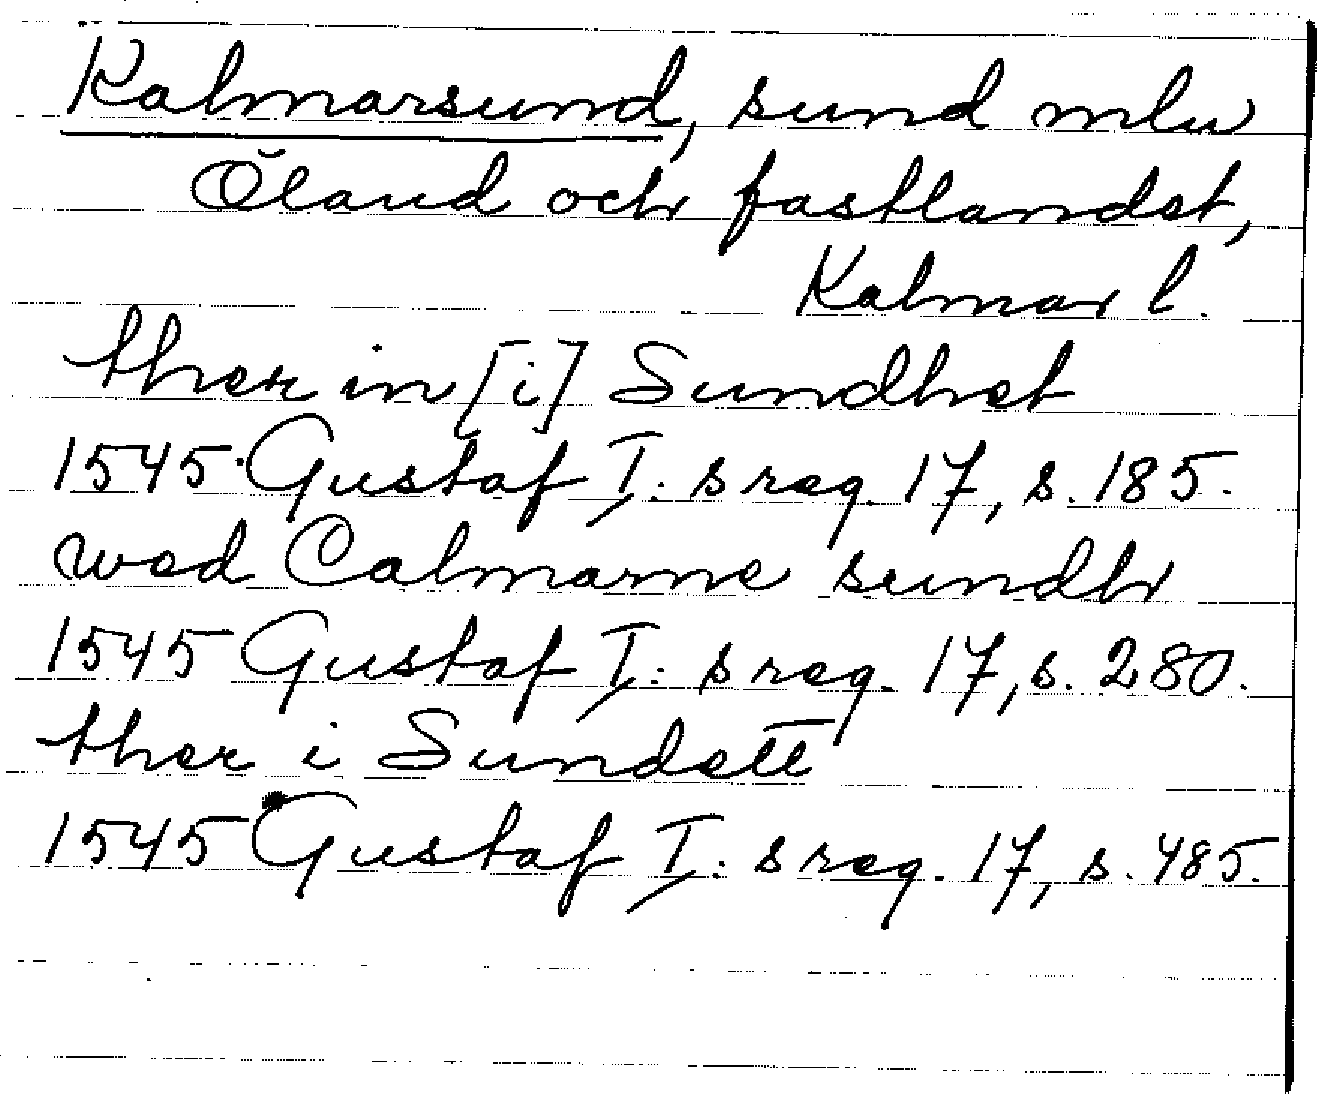 Kalmarsund, sund mlu
Öland och fastlandet,
Kalmar l.
ther in [i] Sundhet
1545 Gustaf I:s reg. 17, s. 185.
wed Calmarne sundh
1545 Gustaf I:s reg. 17, s. 280.
ther i Sundett
1545 Gustaf I:s reg. 17, s. 485.